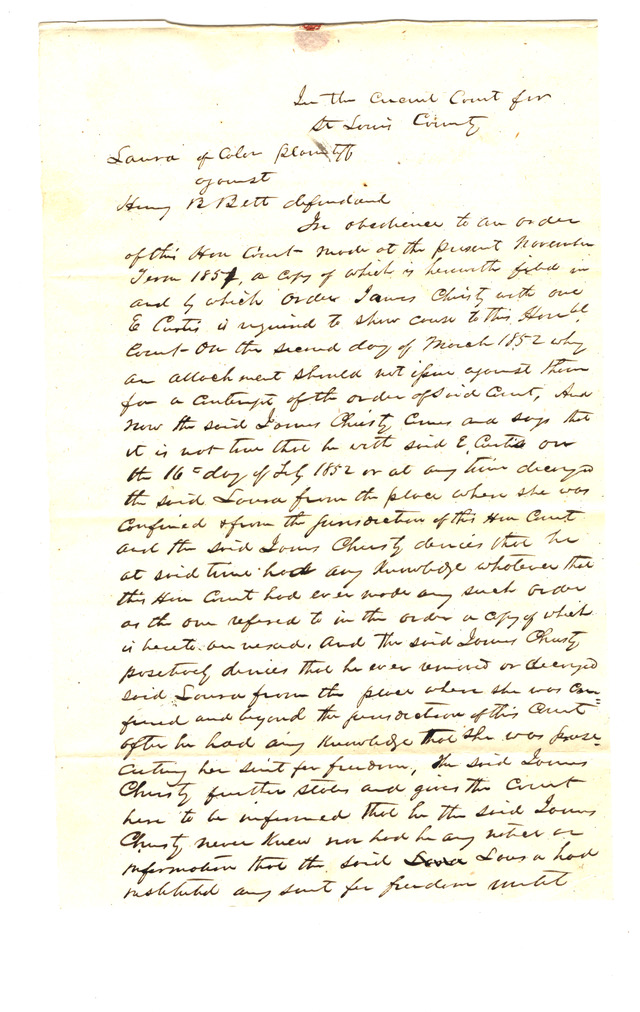 In the Circuit Court for
St Louis County
Laura of Color plaintiff
against
Henry B Belt defendant
In obedience to an order
of this Hon Court made at the present November
Term 1851, a copy of which is herewith filed in
and by which order James Christy with one
E Curtis is required to show cause to this Honbl
Court On the second day of March 1852 why
an attachment should not issue against them
for a contempt of the order of said Court, And
now the said James Christy comes and says that
it is not true that he with said E. Curtis on
the 16th day of Feby 1852 or at any time decoyed
the said Laura from the place where she was
confined & from the jurisdiction of this Hon Court
and the said James Christy denies that he
at said time had any knowledge whatever that
this Hon Court had ever made any such order
as the one refered to in the order a copy of which
is hereto annexed. And the said James Christy
positively denies that he ever removed or decoyed
said Laura from the place where she was con=
fined and beyond the jurisdiction of this Court
after he had any knowledge that she was prose=
cuting her suit for freedom, The said James
Christy further states and gives the Court
here to be informed that he the said James
Christy never knew nor had he any notice or
information that the said Laura had
instituted any suit for freedom until